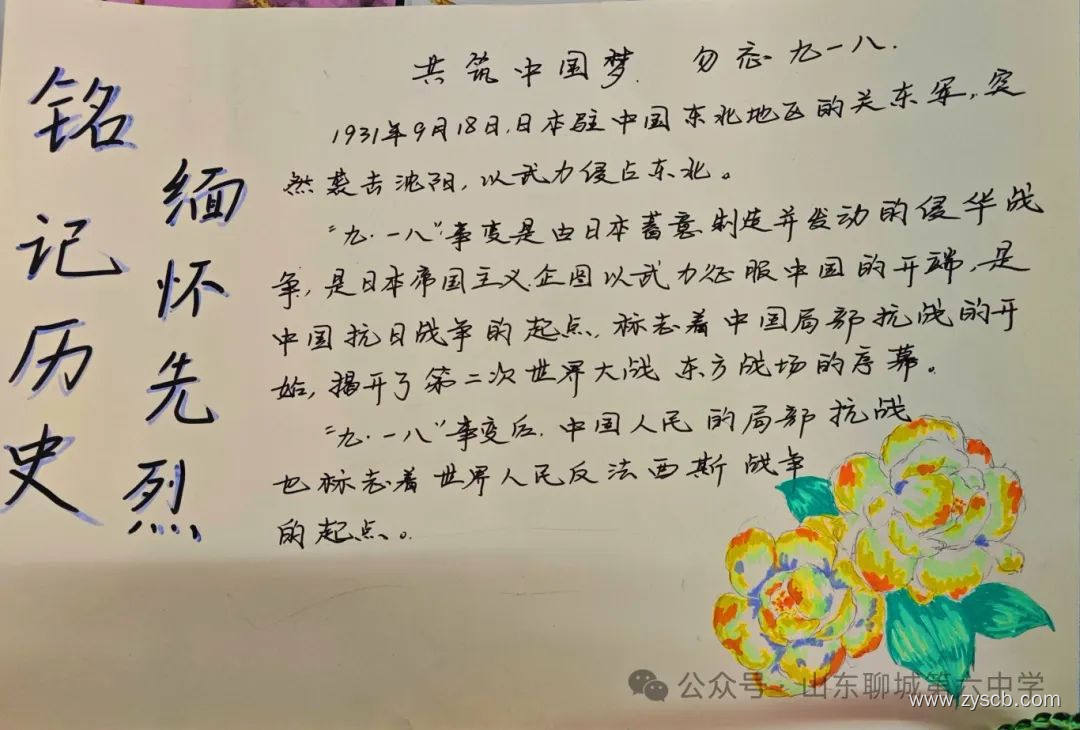 铭记历史
缅怀先烈
共筑中国梦 勿忘九一八.
1931年9月18日,日本驻中国东北地区的关东军,突
然袭击沈阳,以武力侵占东北。
“九·一八”事变是由日本蓄意制造并发动的侵华战
争,是日本帝国主义企图以武力征服中国的开端,是
中国抗日战争的起点,标志着中国局部抗战的开
始,揭开了第二次世界大战东方战场的序幕。
“九·一八”事变后,中国人民的局部抗战
也标志着世界人民反法西斯战争
的起点。
公众号·山东聊城第六中学
www.zyscb.com